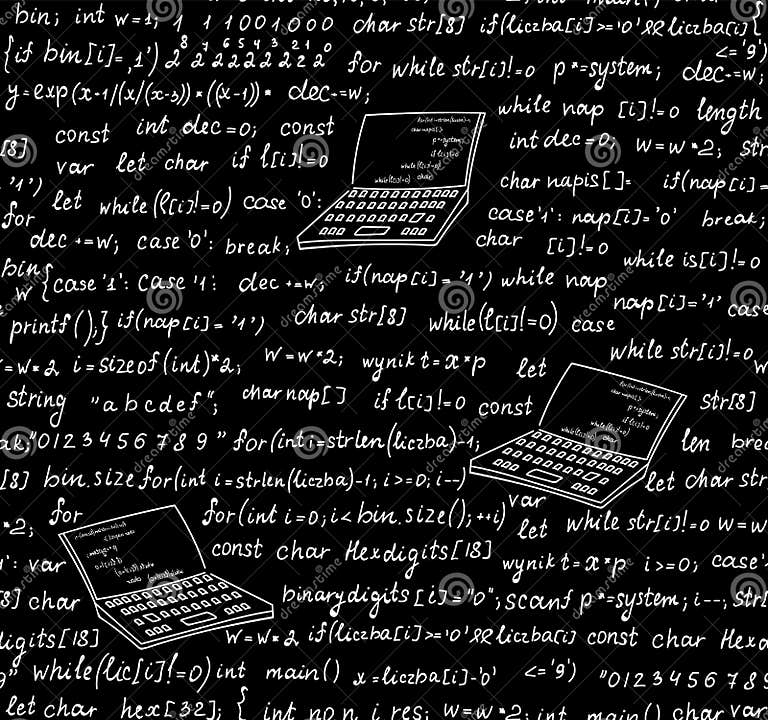 bin; int w=1; 1 1 1001,000 char str[8] if(liczba[i]>='0'&&liczba[i]
{if bin[i]=,1') 2⁸ 2⁷ 2⁶ 2⁵ 2⁴ 2³ 2² 2¹ 2⁰ for while str[i]!=0 p*=system; dec+=w; <='9')
y=exp(x-1/(x/(x-3))*((x-1))* dec+=w;
while nap [i]!=0 length
[8] const int dec=0; const int dec=0; w=w*2; str
var let char if l[i]!=0
'1') let while(l[i]!=0) case '0': char napis[]= if(nap[i]=
for case'1': nap[i]='0' break;
dec+=w; case '0': break; char [i]!=0
while is[i]!=0
bin
w {case '1': case '1: dec+=w; if(nap[i]='1') while nap
nap[i]='1' case
printf();} if(nap[i]='1') char str[8] while(l[i]!=0) case
=w*2 i=sizeof(int)*2; w=w*2; wynik t=x*p let while str[i]!=0 w
string "abcdef"; char nap[] if l[i]!=0 const str[8]
ak "0123456789" for(int i=strlen(liczba)-1; len brea
[8] bin.size for(int i=strlen(liczba)-1; i>=0; i--) let char str
*2; for for(int i=0; i<bin.size(); ++i) var
let while str[i]!=0 w=w
': var const char Hexdigits[18] wynik t=x*p i>=0; case'
8] char binarydigits[i]="0"; scanf p*=system; i--; str[
digits[18] w=w*2 if(liczba[i]>='0'&&liczba[i] const char Hexd
9" while(lic[i]!=0) int main() x=liczba[i]-'0' <='9') "0123456789
let char hex[32]; { int no n i res; w=w*2; int main() char var
dreamstime